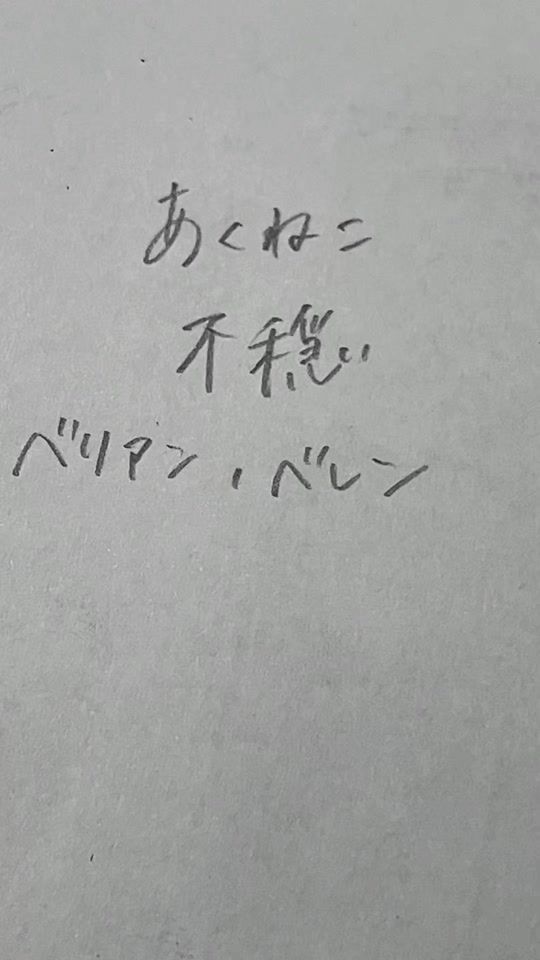 あくねこ
不穏
ベリアン、ベレン